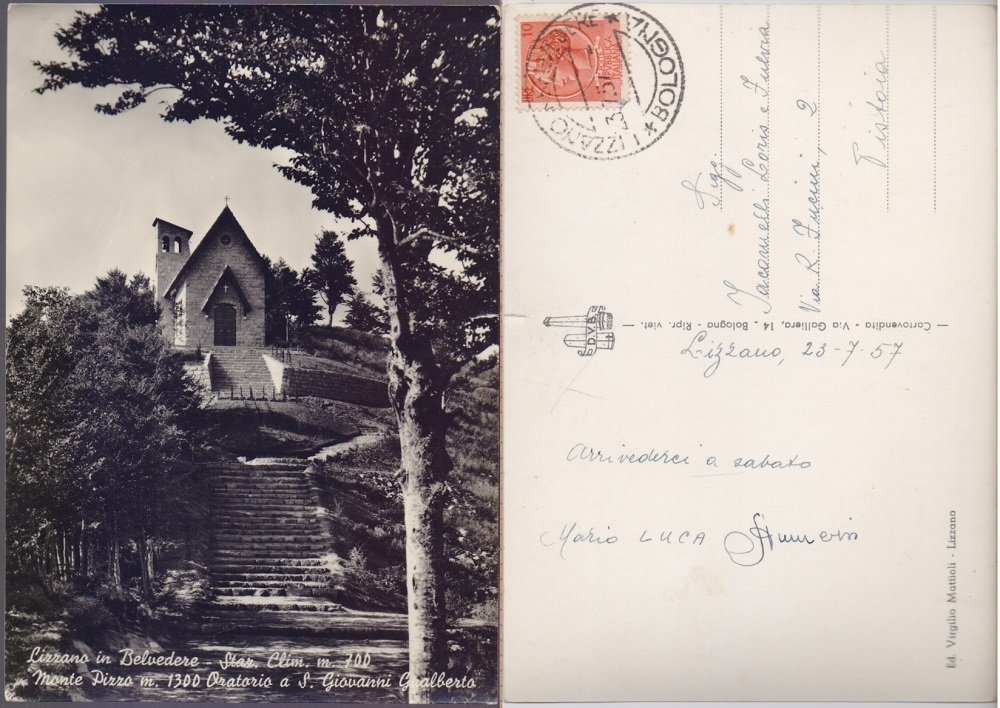 Lizzano in Belvedere - Staz. Clim. m. 700
Monte Pizzo m. 1300 Oratorio a S. Giovanni Gualberto
LIRE 10
LIZZANO
* BOLOGNA *
Sigg.
Loris e Fulvia
Via R. Fucini, 2
Pistoia
— Cartovendita - Via Galliera, 14 - Bologna - Ripr. viet. —
D.V.B.
Lizzano, 23-7-57
Arrivederci a sabato
Mario LUCA
Ed. Virgilio Mattioli - Lizzano